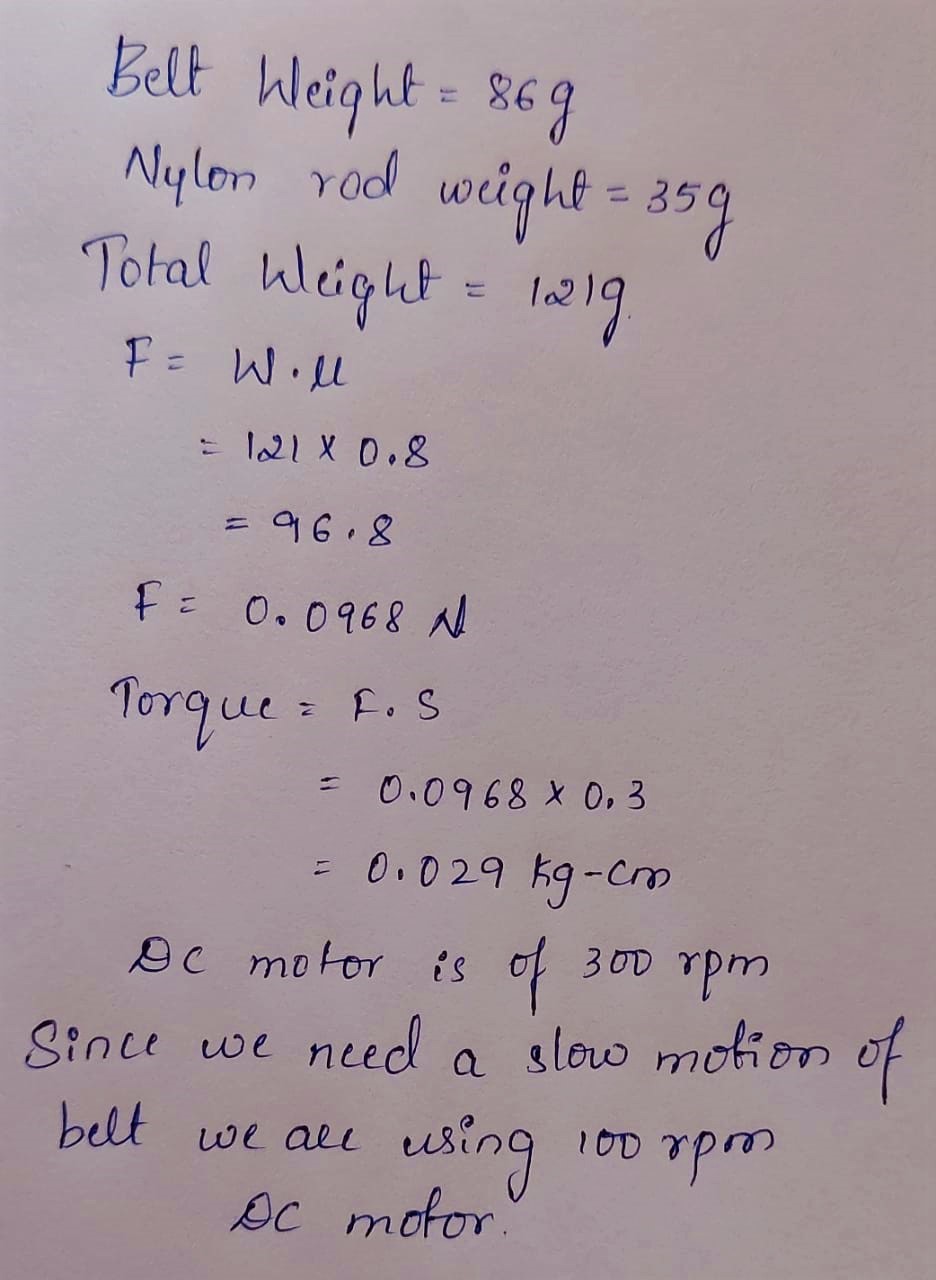 Belt Weight = 86g
Nylon rod weight = 35g
Total Weight = 121g.
F = W.μ
= 121 x 0.8
= 96.8
F = 0.0968 N
Torque = F.S
= 0.0968 x 0.3
= 0.029 kg-cm
DC motor is of 300 rpm
Since we need a slow motion of
belt we are using 100 rpm
DC motor.